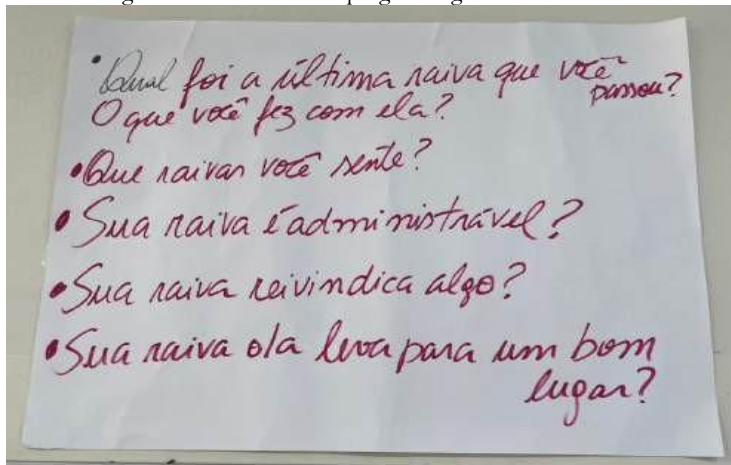 • Qual foi a última raiva que você
passou?
O que você fez com ela?
• Que raivas você sente?
• Sua raiva é administrável?
• Sua raiva reivindica algo?
• Sua raiva o/a leva para um bom
lugar?